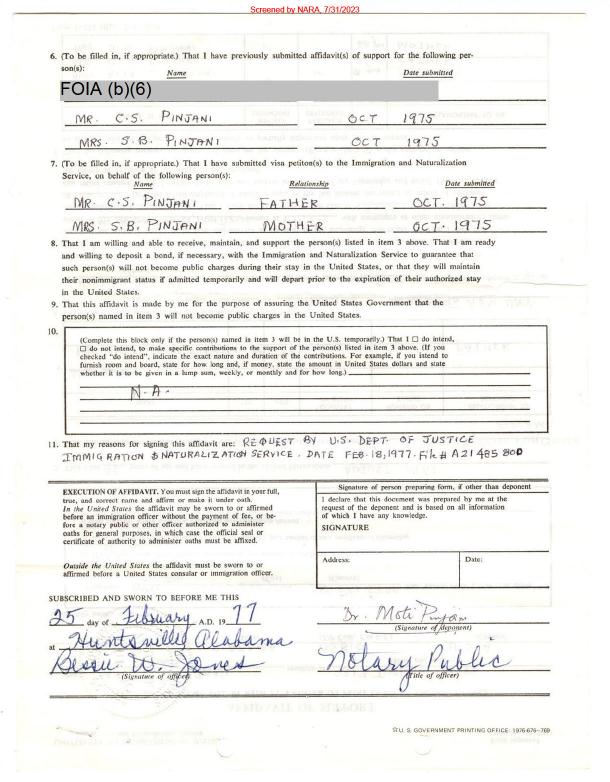 Screened by NARA, 7/31/2023
6. (To be filled in, if appropriate.) That I have previously submitted affidavit(s) of support for the following per-
son(s):
Name Date submitted
FOIA (b)(6)
MR. C.S. PINJANI OCT 1975
MRS. S.B. PINJANI OCT 1975
7. (To be filled in, if appropriate.) That I have submitted visa petiton(s) to the Immigration and Naturalization
Service, on behalf of the following person(s):
Name Relationship Date submitted
MR. C.S. PINJANI FATHER OCT. 1975
MRS. S.B. PINJANI MOTHER OCT. 1975
8. That I am willing and able to receive, maintain, and support the person(s) listed in item 3 above. That I am ready
and willing to deposit a bond, if necessary, with the Immigration and Naturalization Service to guarantee that
such person(s) will not become public charges during their stay in the United States, or that they will maintain
their nonimmigrant status if admitted temporarily and will depart prior to the expiration of their authorized stay
in the United States.
9. That this affidavit is made by me for the purpose of assuring the United States Government that the
person(s) named in item 3 will not become public charges in the United States.
10.
(Complete this block only if the person(s) named in item 3 will be in the U.S. temporarily.) That I ☐ do intend,
☐ do not intend, to make specific contributions to the support of the person(s) listed in item 3 above. (If you
checked "do intend", indicate the exact nature and duration of the contributions. For example, if you intend to
furnish room and board, state for how long and, if money, state the amount in United States dollars and state
whether it is to be given in a lump sum, weekly, or monthly and for how long.)
N.A.
11. That my reasons for signing this affidavit are: REQUEST BY U.S. DEPT. OF JUSTICE
IMMIGRATION & NATURALIZATION SERVICE. DATE FEB. 18, 1977. File # A21 485 800
EXECUTION OF AFFIDAVIT. You must sign the affidavit in your full,
true, and correct name and affirm or make it under oath.
In the United States the affidavit may be sworn to or affirmed
before an immigration officer without the payment of fee, or be-
fore a notary public or other officer authorized to administer
oaths for general purposes, in which case the official seal or
certificate of authority to administer oaths must be affixed.
Outside the United States the affidavit must be sworn to or
affirmed before a United States consular or immigration officer.
Signature of person preparing form, if other than deponent
I declare that this document was prepared by me at the
request of the deponent and is based on all information
of which I have any knowledge.
SIGNATURE
Address: Date:
SUBSCRIBED AND SWORN TO BEFORE ME THIS
25 day of February A.D. 19 77
Dr. Moti Pinjani
(Signature of deponent)
at Huntsville, Alabama
Bessie W. Jones Notary Public
(Signature of officer) (Title of officer)
☆U. S. GOVERNMENT PRINTING OFFICE: 1976-676-769